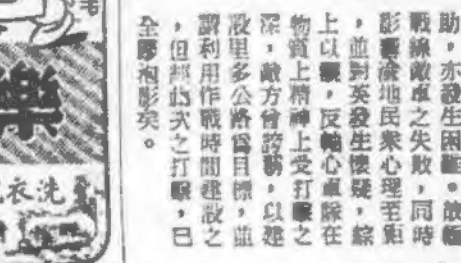 助，亦發生困難。故緬
戰線敵軍之失敗，同時
影響淪地民衆心理至鉅
，並對英發生懷疑，綜
上以觀，反軸心軍隊在
物質上精神上受打擊之
深，敵方曾誇勝，以建
設里多公路爲目標，並
謂利用作戰時間建設之
，但經此次之打擊，已
全歸泡影矣。
樂
洗衣